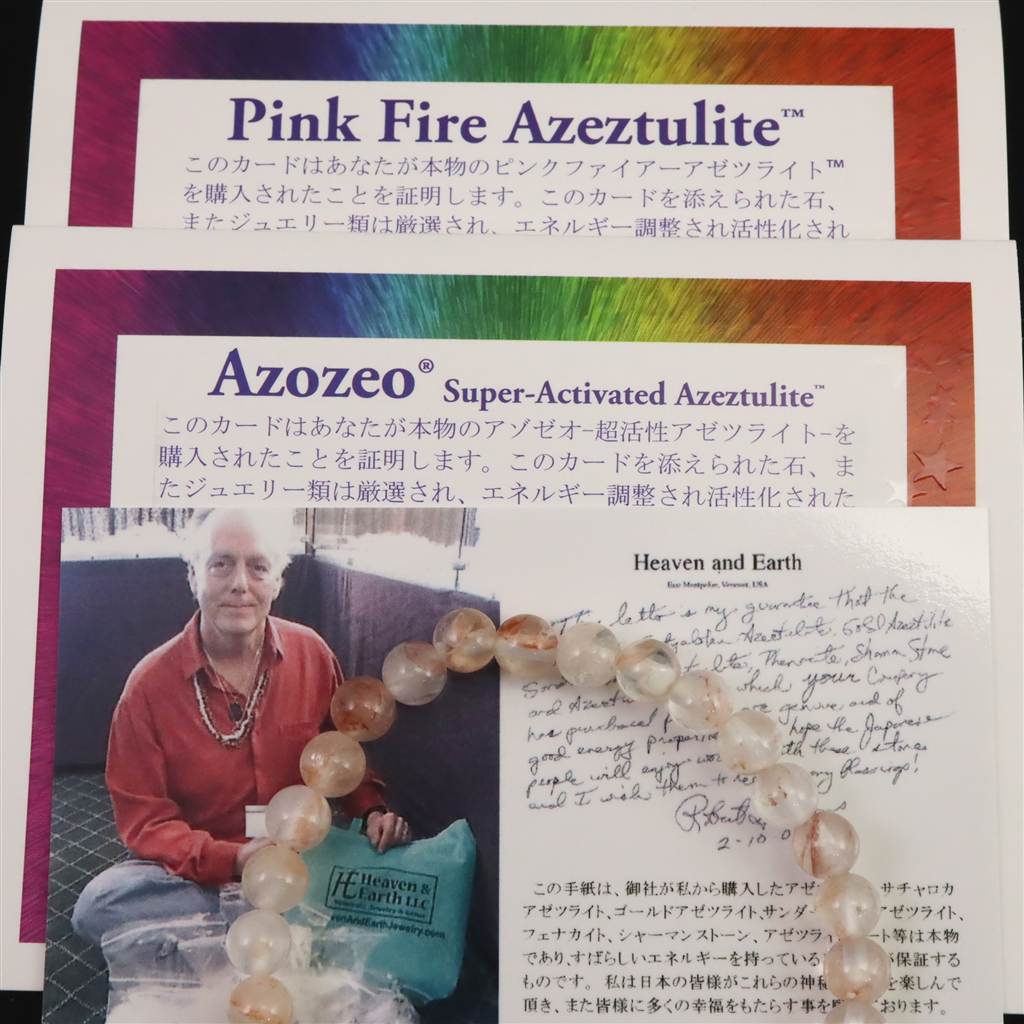 Pink Fire Azeztulite™
このカードはあなたが本物のピンクファイアーアゼツライト™
を購入されたことを証明します。このカードを添えられた石、
またジュエリー類は厳選され、エネルギー調整され活性化され
Azozeo® Super-Activated Azeztulite™
このカードはあなたが本物のアゾゼオ-超活性アゼツライト-を
購入されたことを証明します。このカードを添えられた石、ま
たジュエリー類は厳選され、エネルギー調整され活性化された
Heaven and Earth
East Montpelier, Vermont, USA
letter is my guarantee that the
Azeztulite, Gold Azeztulite
lite, Phenacite, Shaman Stone
and which your Company
has purchased are genuine and of
good energy properties hope the Japanese
people will enjoy these stones
and I wish them to my blessings!
Robert
2-10-0
HE Heaven &
Earth LLC
venAndEarthJewelry.com
この手紙は、御社が私から購入したアゼ サチャロカ
アゼツライト、ゴールドアゼツライト、サンダー アゼツライト、
フェナカイト、シャーマンストーン、アゼツライ ート等は本物
であり、すばらしいエネルギーを持っている が保証する
ものです。 私は日本の皆様がこれらの神秘 を楽しんで
頂き、また皆様に多くの幸福をもたらす事を おります。